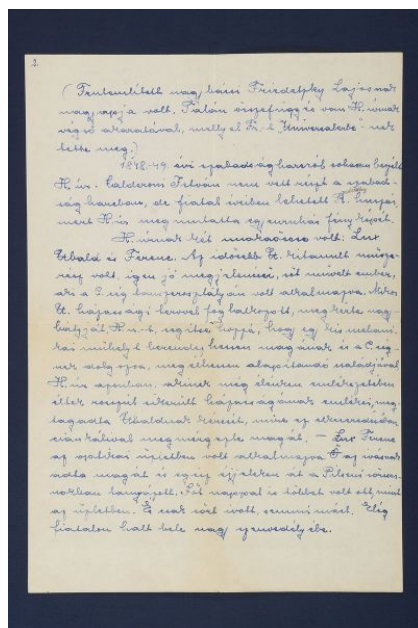 2.
( Fentemlített nagybácsi Friedetzky Lajosnak
nagyapja volt. Talán összefüggés van H. úrnak
végső akaratával, mellyel Fr.-t "Universalerbe"-nek
tette meg.)
1848-49. évi szabadságharcról sokan beszélt
H. úr. Calderoni István nem vett részt a szabad-
ságharcban, de fiatal éveiben lehetett
mert H. úr megmutatta egyenruhás fényképét.
H. úrnak két unokaöccse volt: Lux
Ubald és Ferenc. Az idősebb U. kitanult műsze-
rész volt, igen jó megjelenésű, sőt művelt ember,
aki a C. cég osztályán volt alkalmazva. Mikor
U. házassági tervvel foglalkozott, megkérte nagy-
bátyját H. u.-t, segítse hozzá, hogy egy kis mechani-
kai műhelyt berendezhessen magának és a C. cég-
nek dolgozva, megélhessen alapítandó családjával.
H. úr azonban, akinek még élénken emlékezetében
éltek rosszul sikerült házasságának emlékei, meg-
tagadta Ubaldnak kérését, mire ez elkeseredésében
ciánkálival megmérgezte magát. – Lux Ferenc
az optikai üzletben volt alkalmazva. Ő az ivásnak
adta magát és egész éjjeleken át a Pilseni sörcsar-
nokban tanyázott. Sőt nappal is többet volt ott, mint
az üzletben. És csak sört ivott, semmi mást. Elég
fiatalon halt bele nagy szenvedélyébe.